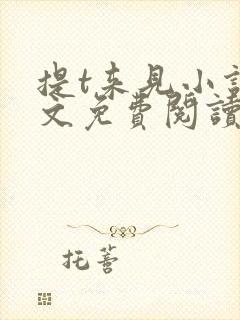 提t来见小説
文免費閱讀
托薝